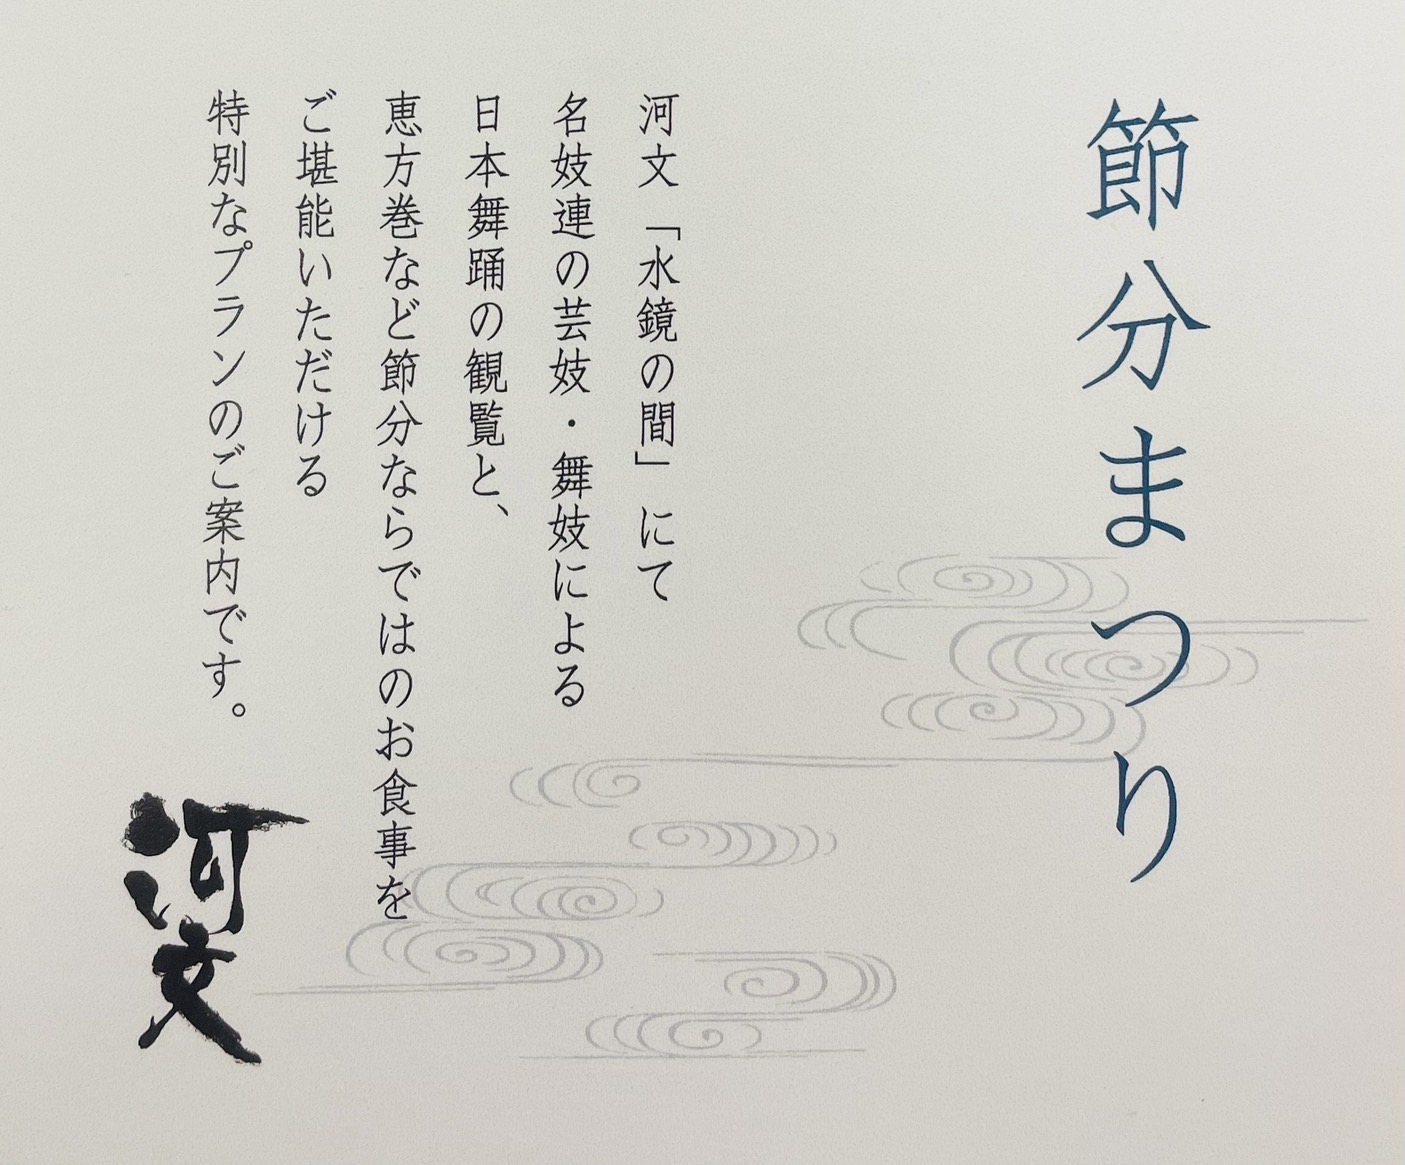 節分まつり
河文「水鏡の間」にて
名妓連の芸妓・舞妓による
日本舞踊の観覧と、
恵方巻など節分ならではのお食事を
ご堪能いただける
特別なプランのご案内です。
河文